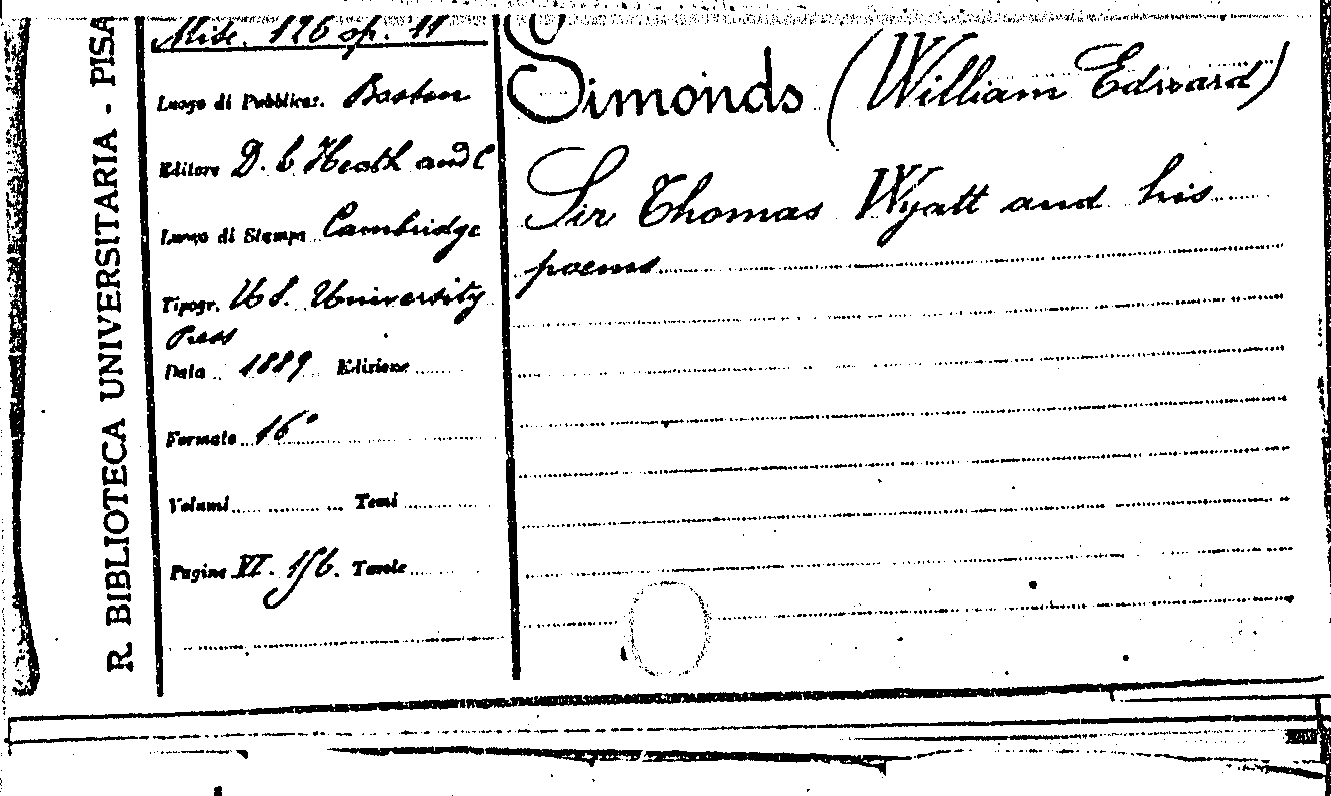 R. BIBLIOTECA UNIVERSITARIA - PISA
Misc. 126 op. 11
Luogo di Pubblicaz. Boston
Editore D. C Heath and C
Luogo di Stampa Cambridge
Tipogr. U S. University
Press
Data 1889 Edizione
Formato 16°
Volumi Tomi
Pagine VI. 156. Tavole
Simonds (William Edward)
Sir Thomas Wyatt and his
poems